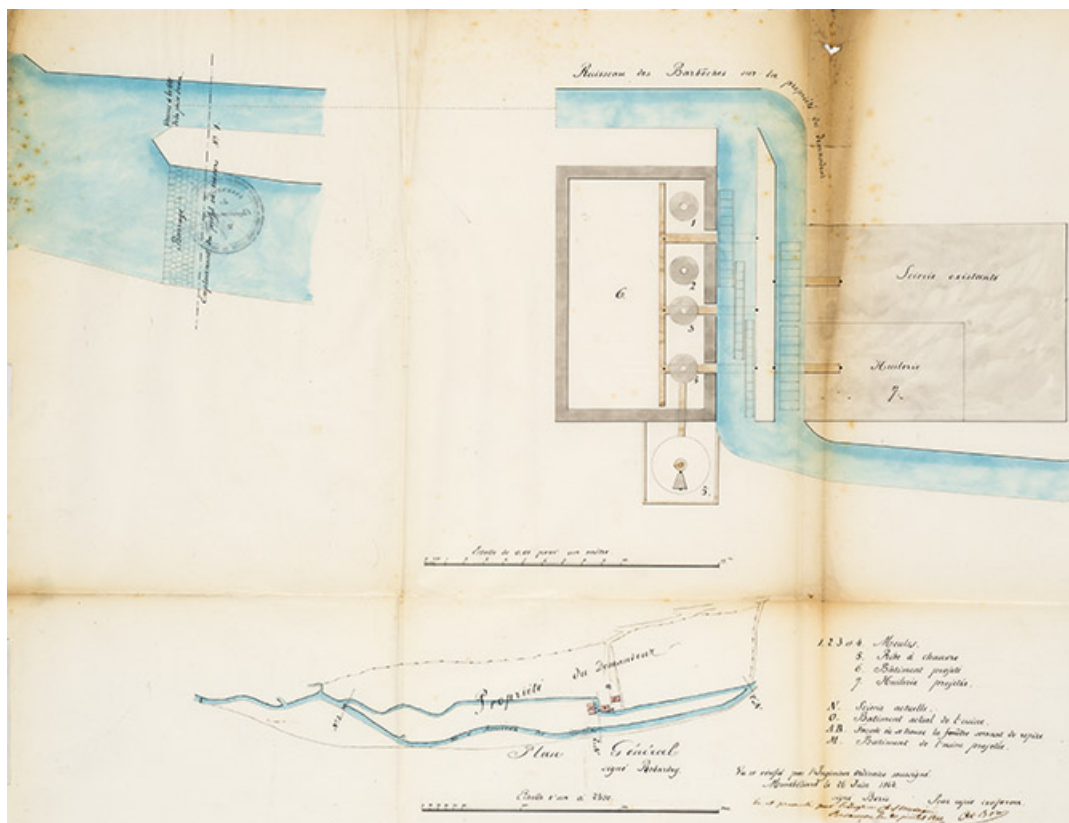 Ruisseau des Barbèches sur la propriété du demandeur
Barrage
Emplacement du profil en travers Nº 1.
1
2
3
4
5.
6.
Scierie existante
Huilerie
7.
Echelle de 0.01 pour un mètre.
Propriété du demandeur
Plan Général
signé Robardey
Echelle d'un à 2500.
1. 2. 3 et 4. Meules.
5. Ribe à chanvre
6. Bâtiment projeté
7. Huilerie projetée.
N. Scierie actuelle.
O. Batiment actuel de l'usine.
A.B. Façade où se trouve la fenêtre servant de repère
M. Batiment de l'usine projetée.
Vu et vérifié par l'Ingénieur ordinaire soussigné
Montbéliard le 26 Juin
signé
Pour copie conforme.
Vu et présenté par l'Ingénieur
Besançon le juillet